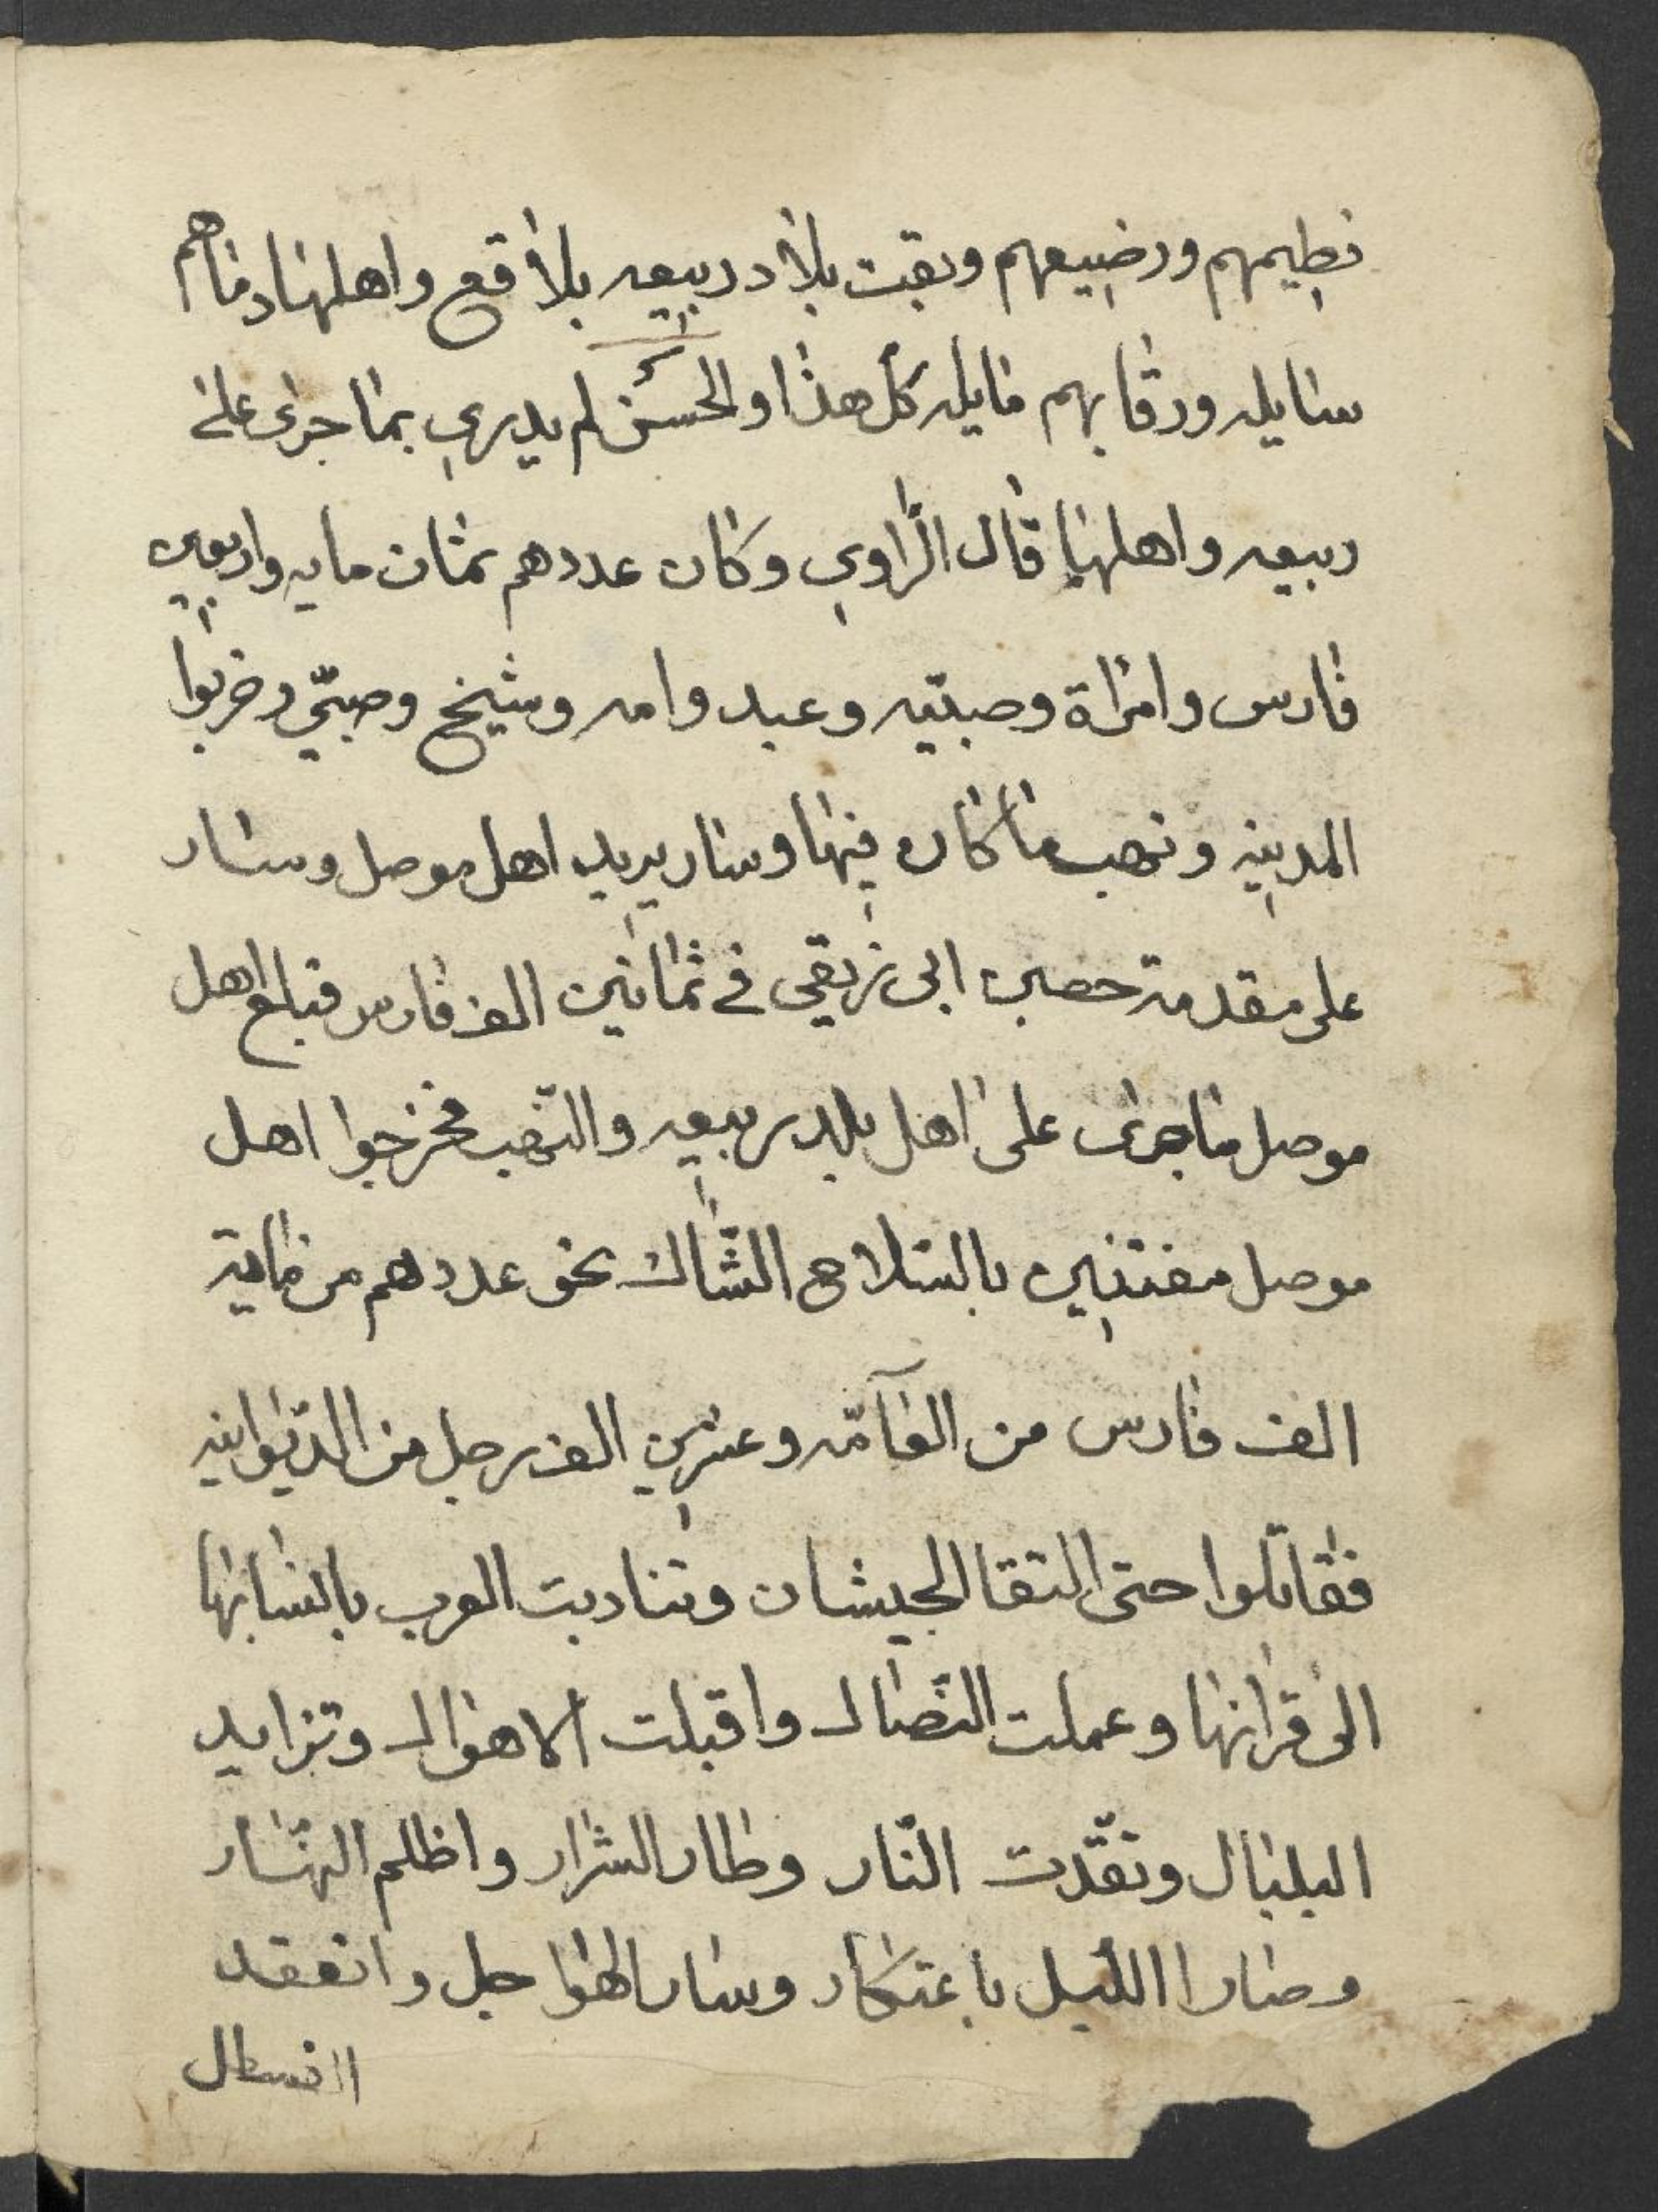 فطيمهم ورضيعهم وبقت بلاد ربيعه بلاقع واهلها دماهم
سايله ورقابهم مايله كل هذا والحسن لم يدري بما جرى على
ربيعه واهلها قال الراوي وكان عددهم ثمان مايه واربعين
فارس وامراة وصبيّه وعبد وامه وشيخ وصبيّ وخربوا
المدينه ونهب ما كان فيها وسار يريد اهل موصل وسار
على مقدمة حصين ابى نريقي في ثمانين الف فارس فبلغ اهل
موصل ما جرى على اهل بلد ربيعه والنّهب فخرجوا اهل
موصل مفتنين بالسلاح الشّاك نحو عددهم من ماية
الف فارس من العآمّه وعشرين الف رجل من الدّيوانيه
فقاتلوا حتى التقا الجيشان وتنادبت العرب بانسابها
الى قرانها وعملت النّصال واقبلت الاهوال وتزايد
البلبال وتقّدت النّار وطار الشرار واظلم النّهار
وصارا الليل باعتكار وسار الهواجل وانعقد
القسطال